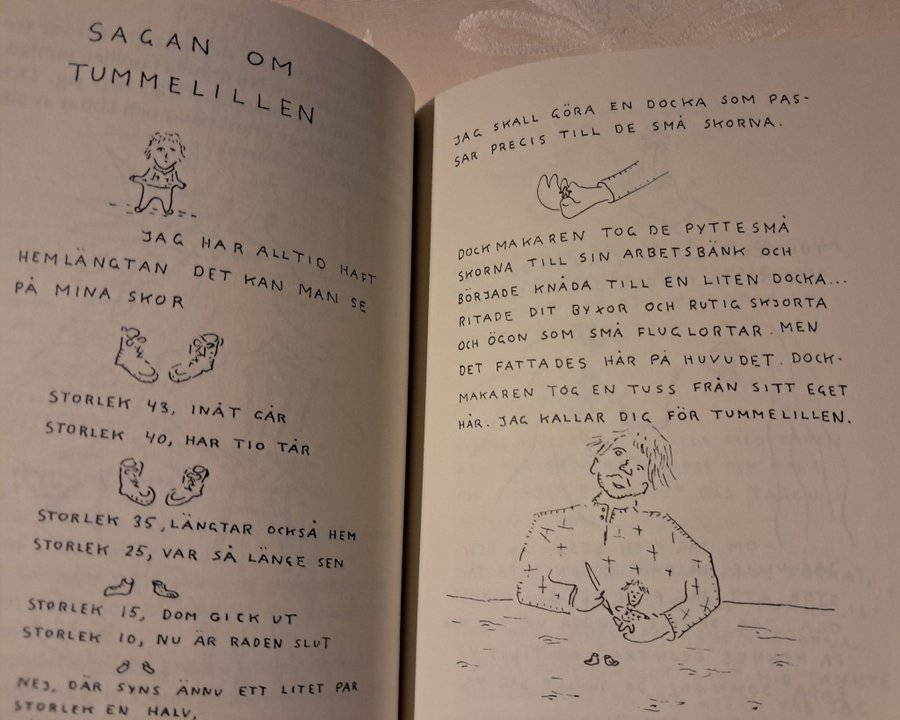 SAGAN OM
TUMMELILLEN
JAG HAR ALLTID HAFT
HEMLÄNGTAN DET KAN MAN SE
PÅ MINA SKOR
STORLEK 43, INÅT GÅR
STORLEK 40, HAR TIO TÅR
STORLEK 35, LÄNGTAR OCKSÅ HEM
STORLEK 25, VAR SÅ LÄNGE SEN
STORLEK 15, DOM GICK UT
STORLEK 10, NU ÄR RADEN SLUT
NEJ, DÄR SYNS ÄNNU ETT LITET PAR
STORLEK EN HALV,
JAG SKALL GÖRA EN DOCKA SOM PAS-
SAR PRECIS TILL DE SMÅ SKORNA.
DOCKMAKAREN TOG DE PYTTESMÅ
SKORNA TILL SIN ARBETSBÄNK OCH
BÖRJADE KNÅDA TILL EN LITEN DOCKA...
RITADE DIT BYXOR OCH RUTIG SKJORTA
OCH ÖGON SOM SMÅ FLUGLORTAR. MEN
DET FATTADES HÅR PÅ HUVUDET. DOCK-
MAKAREN TOG EN TUSS FRÅN SITT EGET
HÅR. JAG KALLAR DIG FÖR TUMMELILLEN.